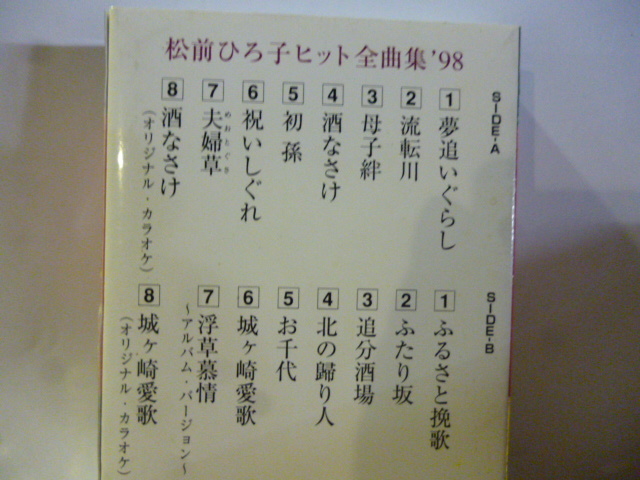 松前ひろ子ヒット全曲集'98
SIDE-A
1 夢追いぐらし
2 流転川
3 母子絆
4 酒なさけ
5 初孫
6 祝いしぐれ
7 夫婦草
めおとぐさ
8 酒なさけ
(オリジナル・カラオケ)
SIDE-B
1 ふるさと挽歌
2 ふたり坂
3 追分酒場
4 北の歸り人
5 お千代
6 城ヶ崎愛歌
7 浮草慕情
~アルバム・バージョン~
8 城ヶ崎愛歌
(オリジナル・カラオケ)